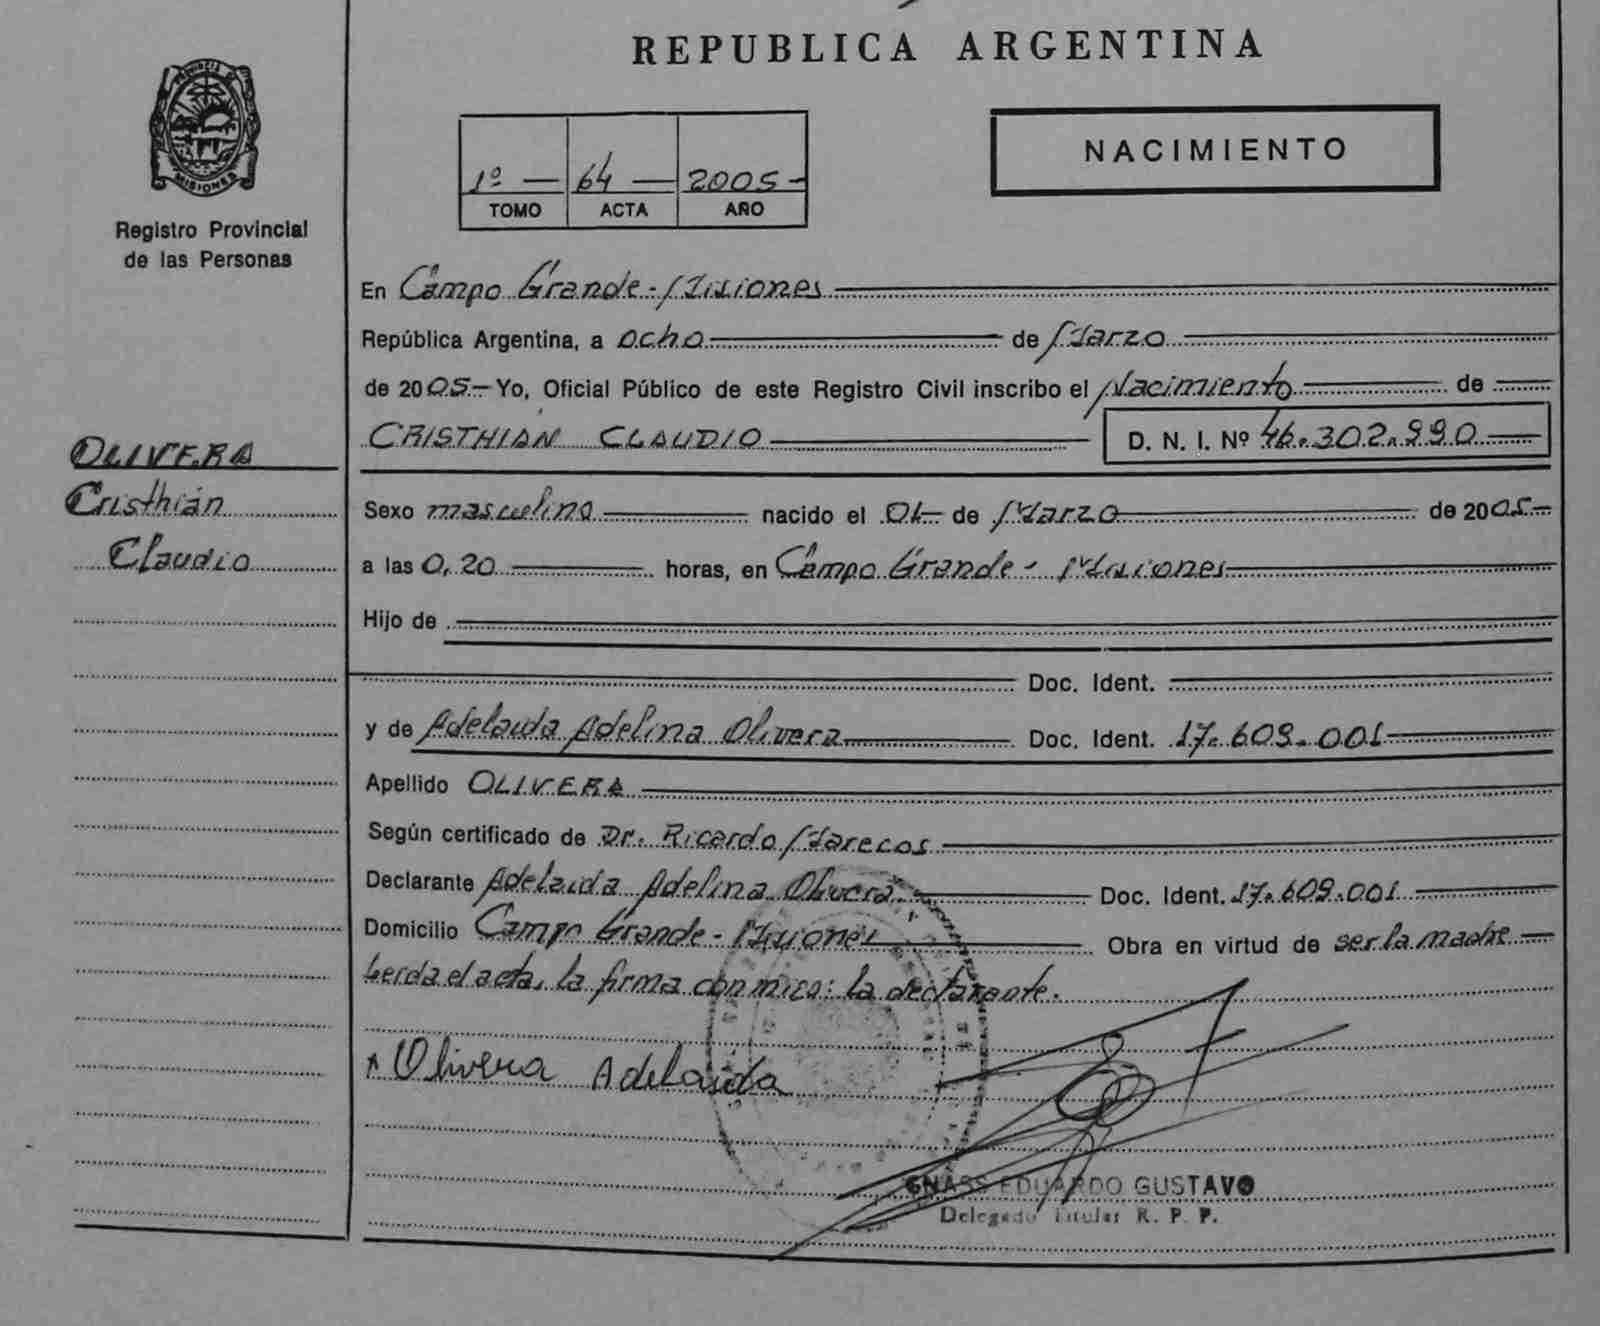 REPUBLICA ARGENTINA
PROVINCIA DE
MISIONES
Registro Provincial
de las Personas
1º — 64 — 2005 -
TOMO ACTA AÑO
NACIMIENTO
En Campo Grande - Misiones
República Argentina, a ocho de Marzo
de 2005 — Yo, Oficial Público de este Registro Civil inscribo el Nacimiento de
CRISTHIAN CLAUDIO D. N. I. Nº 46.302.990
OLIVERA
Cristhián
Claudio
Sexo masculino nacido el 01 de Marzo de 2005 —
a las 0,20 horas, en Campo Grande - Misiones
Hijo de
Doc. Ident.
y de Adelaida Adelina Olivera Doc. Ident. 17.609.001
Apellido OLIVERA
Según certificado de Dr. Ricardo Marecos
Declarante Adelaida Adelina Olivera Doc. Ident. 17.609.001
Domicilio Campo Grande - Misiones Obra en virtud de ser la madre —
Leída el acta, la firma conmigo: la declarante.
Olivera Adelaida
GNASS EDUARDO GUSTAVO
Delegado Titular R. P. P.